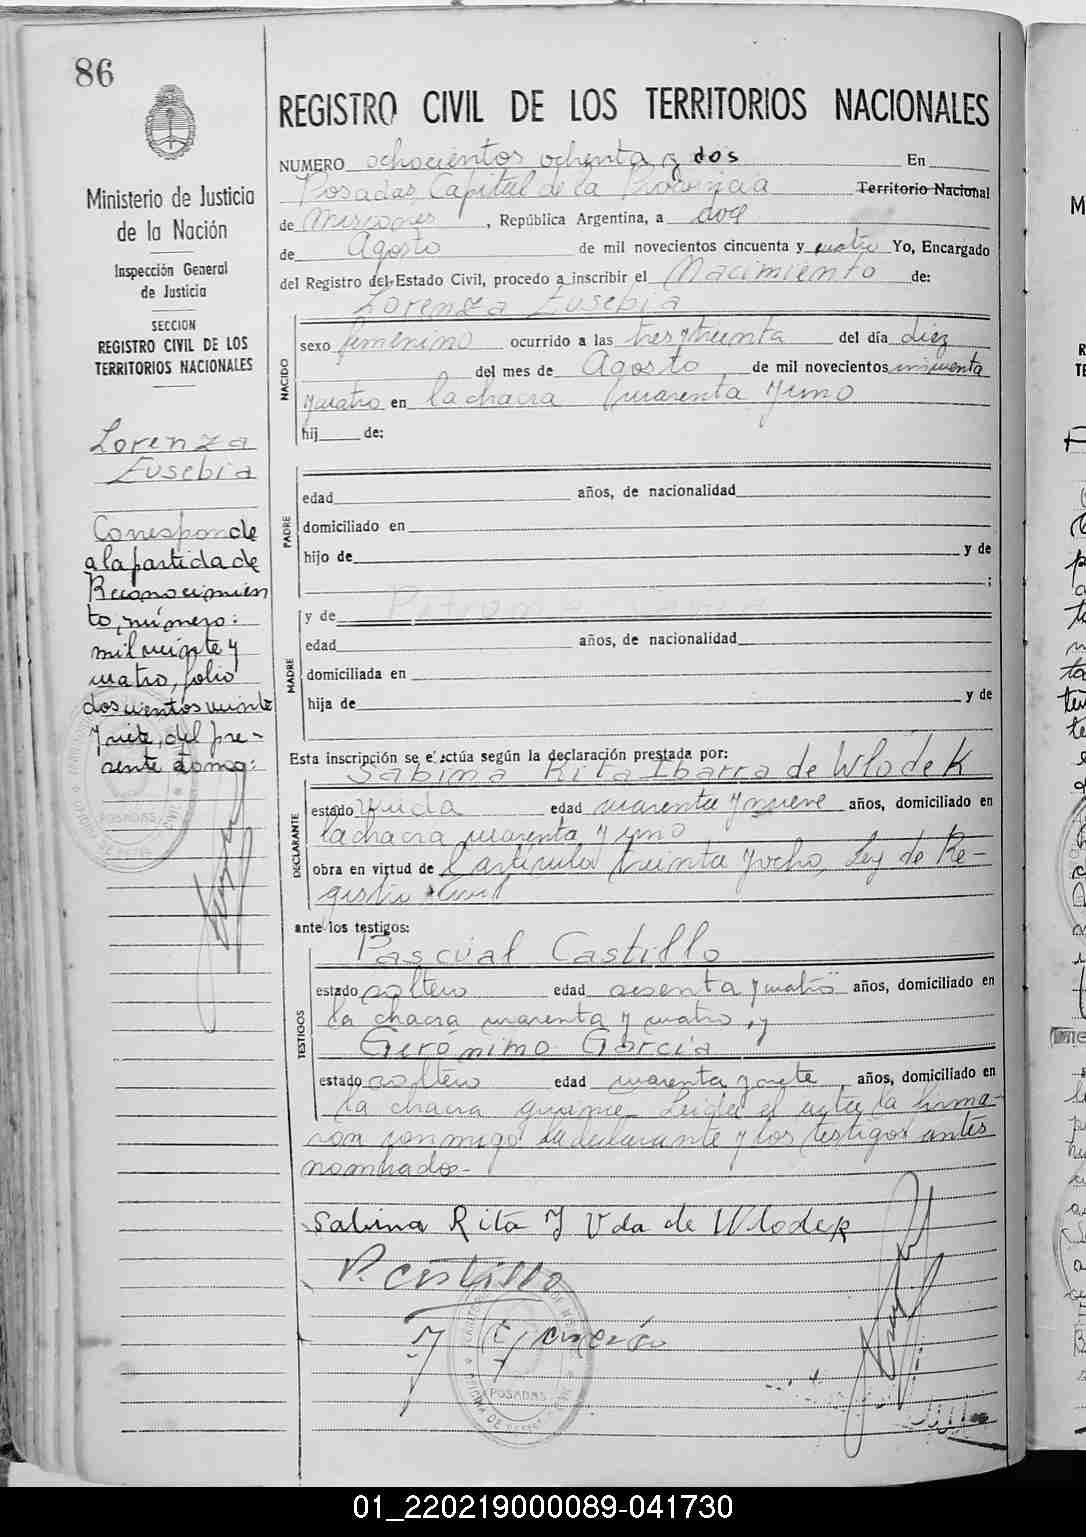 86
Ministerio de Justicia
de la Nación
Inspección General
de Justicia
SECCION
REGISTRO CIVIL DE LOS
TERRITORIOS NACIONALES
Lorenza
Eusebia
Corresponde
a la partida de
Reconocimien
to, número:
mil veinte y
cuatro, folio
doscientos veinte
y siete, del pre-
sente tomo:
REGISTRO CIVIL DE LOS TERRITORIOS NACIONALES
NUMERO ochocientos ochenta y dos En
Posadas, Capital de la Provincia Territorio Nacional
de Misiones, República Argentina, a doce
de Agosto de mil novecientos cincuenta y cuatro Yo, Encargado
del Registro del Estado Civil, procedo a inscribir el Nacimiento de:
Lorenza Eusebia
NACIDO
sexo femenino ocurrido a las tres y treinta del día diez
del mes de Agosto de mil novecientos cincuenta
y cuatro en la chacra cuarenta y uno
hij de:
PADRE
edad años, de nacionalidad
domiciliado en
hijo de y de
;
MADRE
y de
edad años, de nacionalidad
domiciliada en
hija de y de
Esta inscripción se efectúa según la declaración prestada por:
Sabina Rita Ibarra de Wlodek
DECLARANTE
estado viuda edad cuarenta y nueve años, domiciliado en
la chacra cuarenta y uno
obra en virtud de l artículo treinta y ocho, Ley de Re-
gistro Civil
ante los testigos:
Pascual Castillo
TESTIGOS
estado soltero edad sesenta y cuatro años, domiciliado en
la chacra cuarenta y cuatro, y
Gerónimo García
estado soltero edad cuarenta y siete años, domiciliado en
la chacra quince. Leída el acta, la firma-
ron conmigo la declarante y los testigos antes
nombrados.-
Sabina Rita Y Vda de Wlodek
P. Castillo
POSADAS
POSADAS
01_220219000089-041730